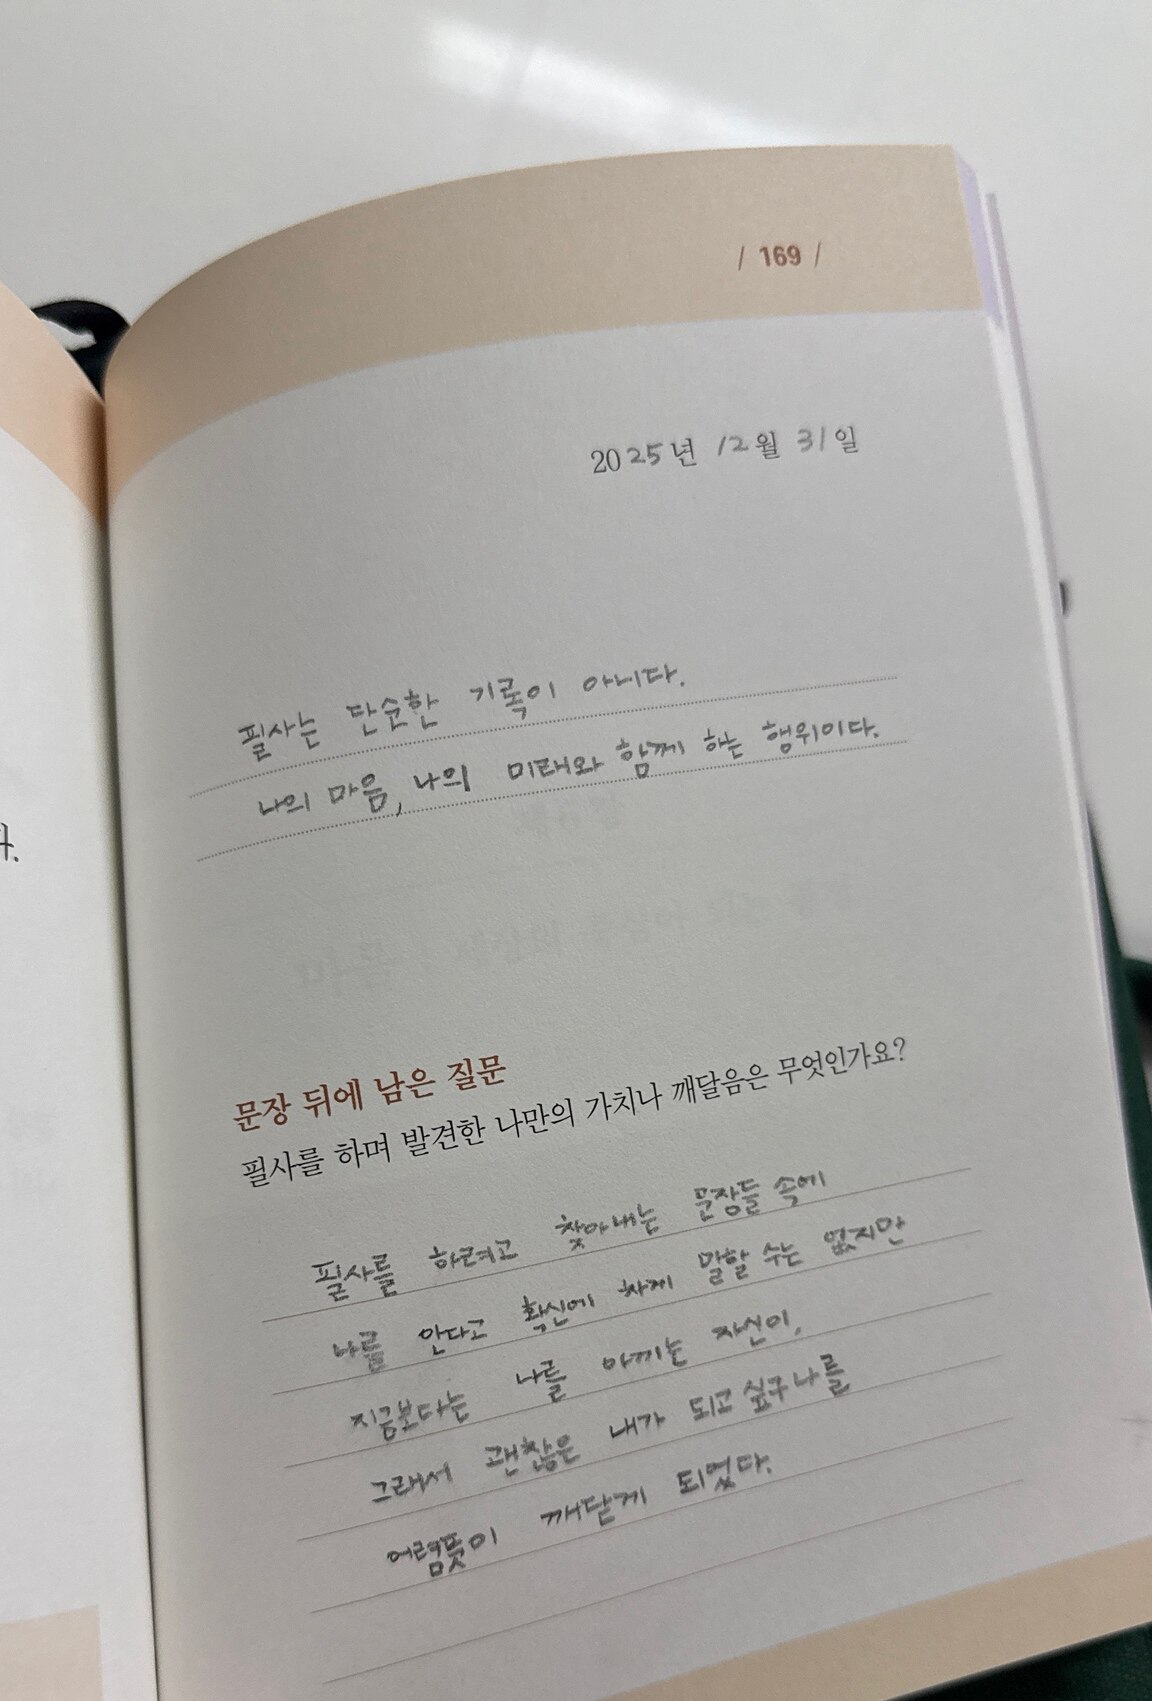 / 169 /
2025년 12월 31일
필사는 단순한 기록이 아니다.
나의 마음, 나의 미래와 함께 하는 행위이다.
문장 뒤에 남은 질문
필사를 하며 발견한 나만의 가치나 깨달음은 무엇인가요?
필사를 하려고 찾아내는 문장들 속에
나를 안다고 확신에 차게 말할 수는 없지만
지금보다는 나를 아끼는 자신이,
그래서 괜찮은 내가 되고 싶구나를
어렴풋이 깨닫게 되었다.